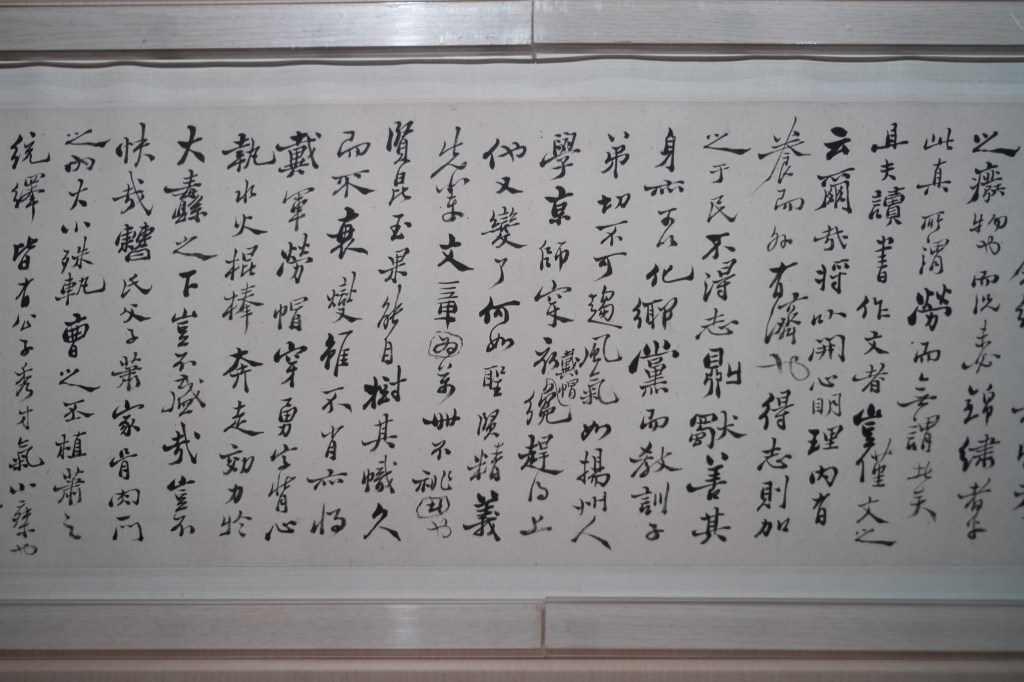 之癈物也而况未必錦繡者乎
此真所謂勞而無謂者矣
且夫讀書作文者豈僅文之
云爾哉將以開心明理內有
養而外有濟也得志則加
之于民不得志則獨善其
身亦可以化鄉黨而教訓子
弟切不可趨風氣如揚州人
學京師穿衣戴帽纔趕得上
他又變了何如聖賢精義
先輩文章萬世不祧也
賢昆玉果能自樹其幟久
而不衰燮雖不肖亦將
戴軍勞帽穿勇字背心
執水火棍棒奔走効力於
大纛之下豈不盛哉豈不
快哉曹氏父子蕭家骨肉
之內大小殊軌曹之丕植蕭之
統繹皆有公子秀才氣小樣也